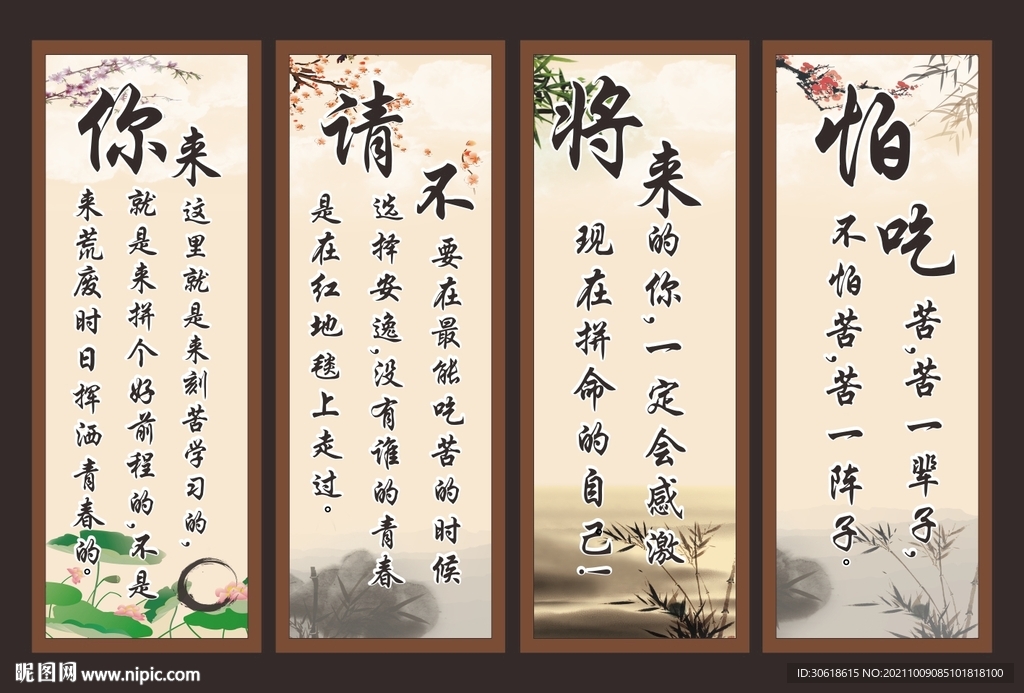 你
来这里就是来刻苦学习的，
就是来拼个好前程的，不是
来荒废时日挥洒青春的。
请
不要在最能吃苦的时候
选择安逸，没有谁的青春
是在红地毯上走过。
将
来的你，一定会感激
现在拼命的自己！
怕
吃苦，苦一辈子，
不怕苦，苦一阵子。
昵图网 www.nipic.com
ID:30618615 NO:20211009085101818100